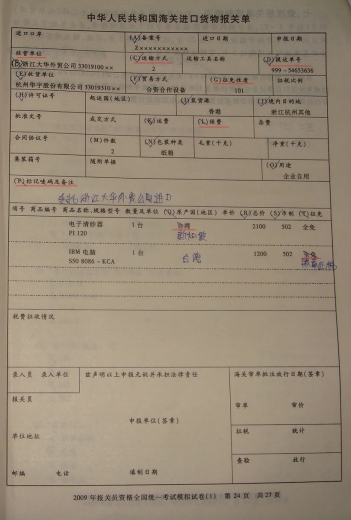 中华人民共和国海关进口货物报关单
进口口岸 (A)备案号 进口日期 申报日期
Z×××××××××××
经营单位 (C)运输方式 运输工具名称 (D)提运单号
(B)浙江大华外贸公司33019100×× 2 999－54653636
(E)收货单位 (F)贸易方式 (G)征免性质 征税比例
杭州华宇股份有限公司33019310×× 合资合作设备 101
(H)许可证号 起运国(地区) (I)装货港 (J)境内目的地
香港 浙江杭州其他
批准文号 成交方式 (K)运费 (L)保费 杂费
合同协议号 (M)件数 (N)包装种类 毛重(千克) 净重(千克)
2 纸箱
集装箱号 随附单据 (O)用途
企业自用
(P)标记唛码及备注
委托浙江大华外贸公司进口
项号 商品编号 商品名称、规格型号 数量及单位 (Q)原产国(地区) 单价 (R)总价 (S)币制 (T)征免
电子清纱器 1台 台湾 2100 502 全免
PI 120
IBM 电脑 1台 台湾 1200 502 全免
S50 8086－KCA
税费征收情况
录入员 录入单位 兹声明以上申报无讹并承担法律责任 海关审单批注放行日期(签章)
报关员
审单 审价
申报单位(签章)
单位地址 征税 统计
查验 放行
邮编 电话 填制日期
2009年报关员资格全国统一考试模拟试卷(1) 第24页 共25页